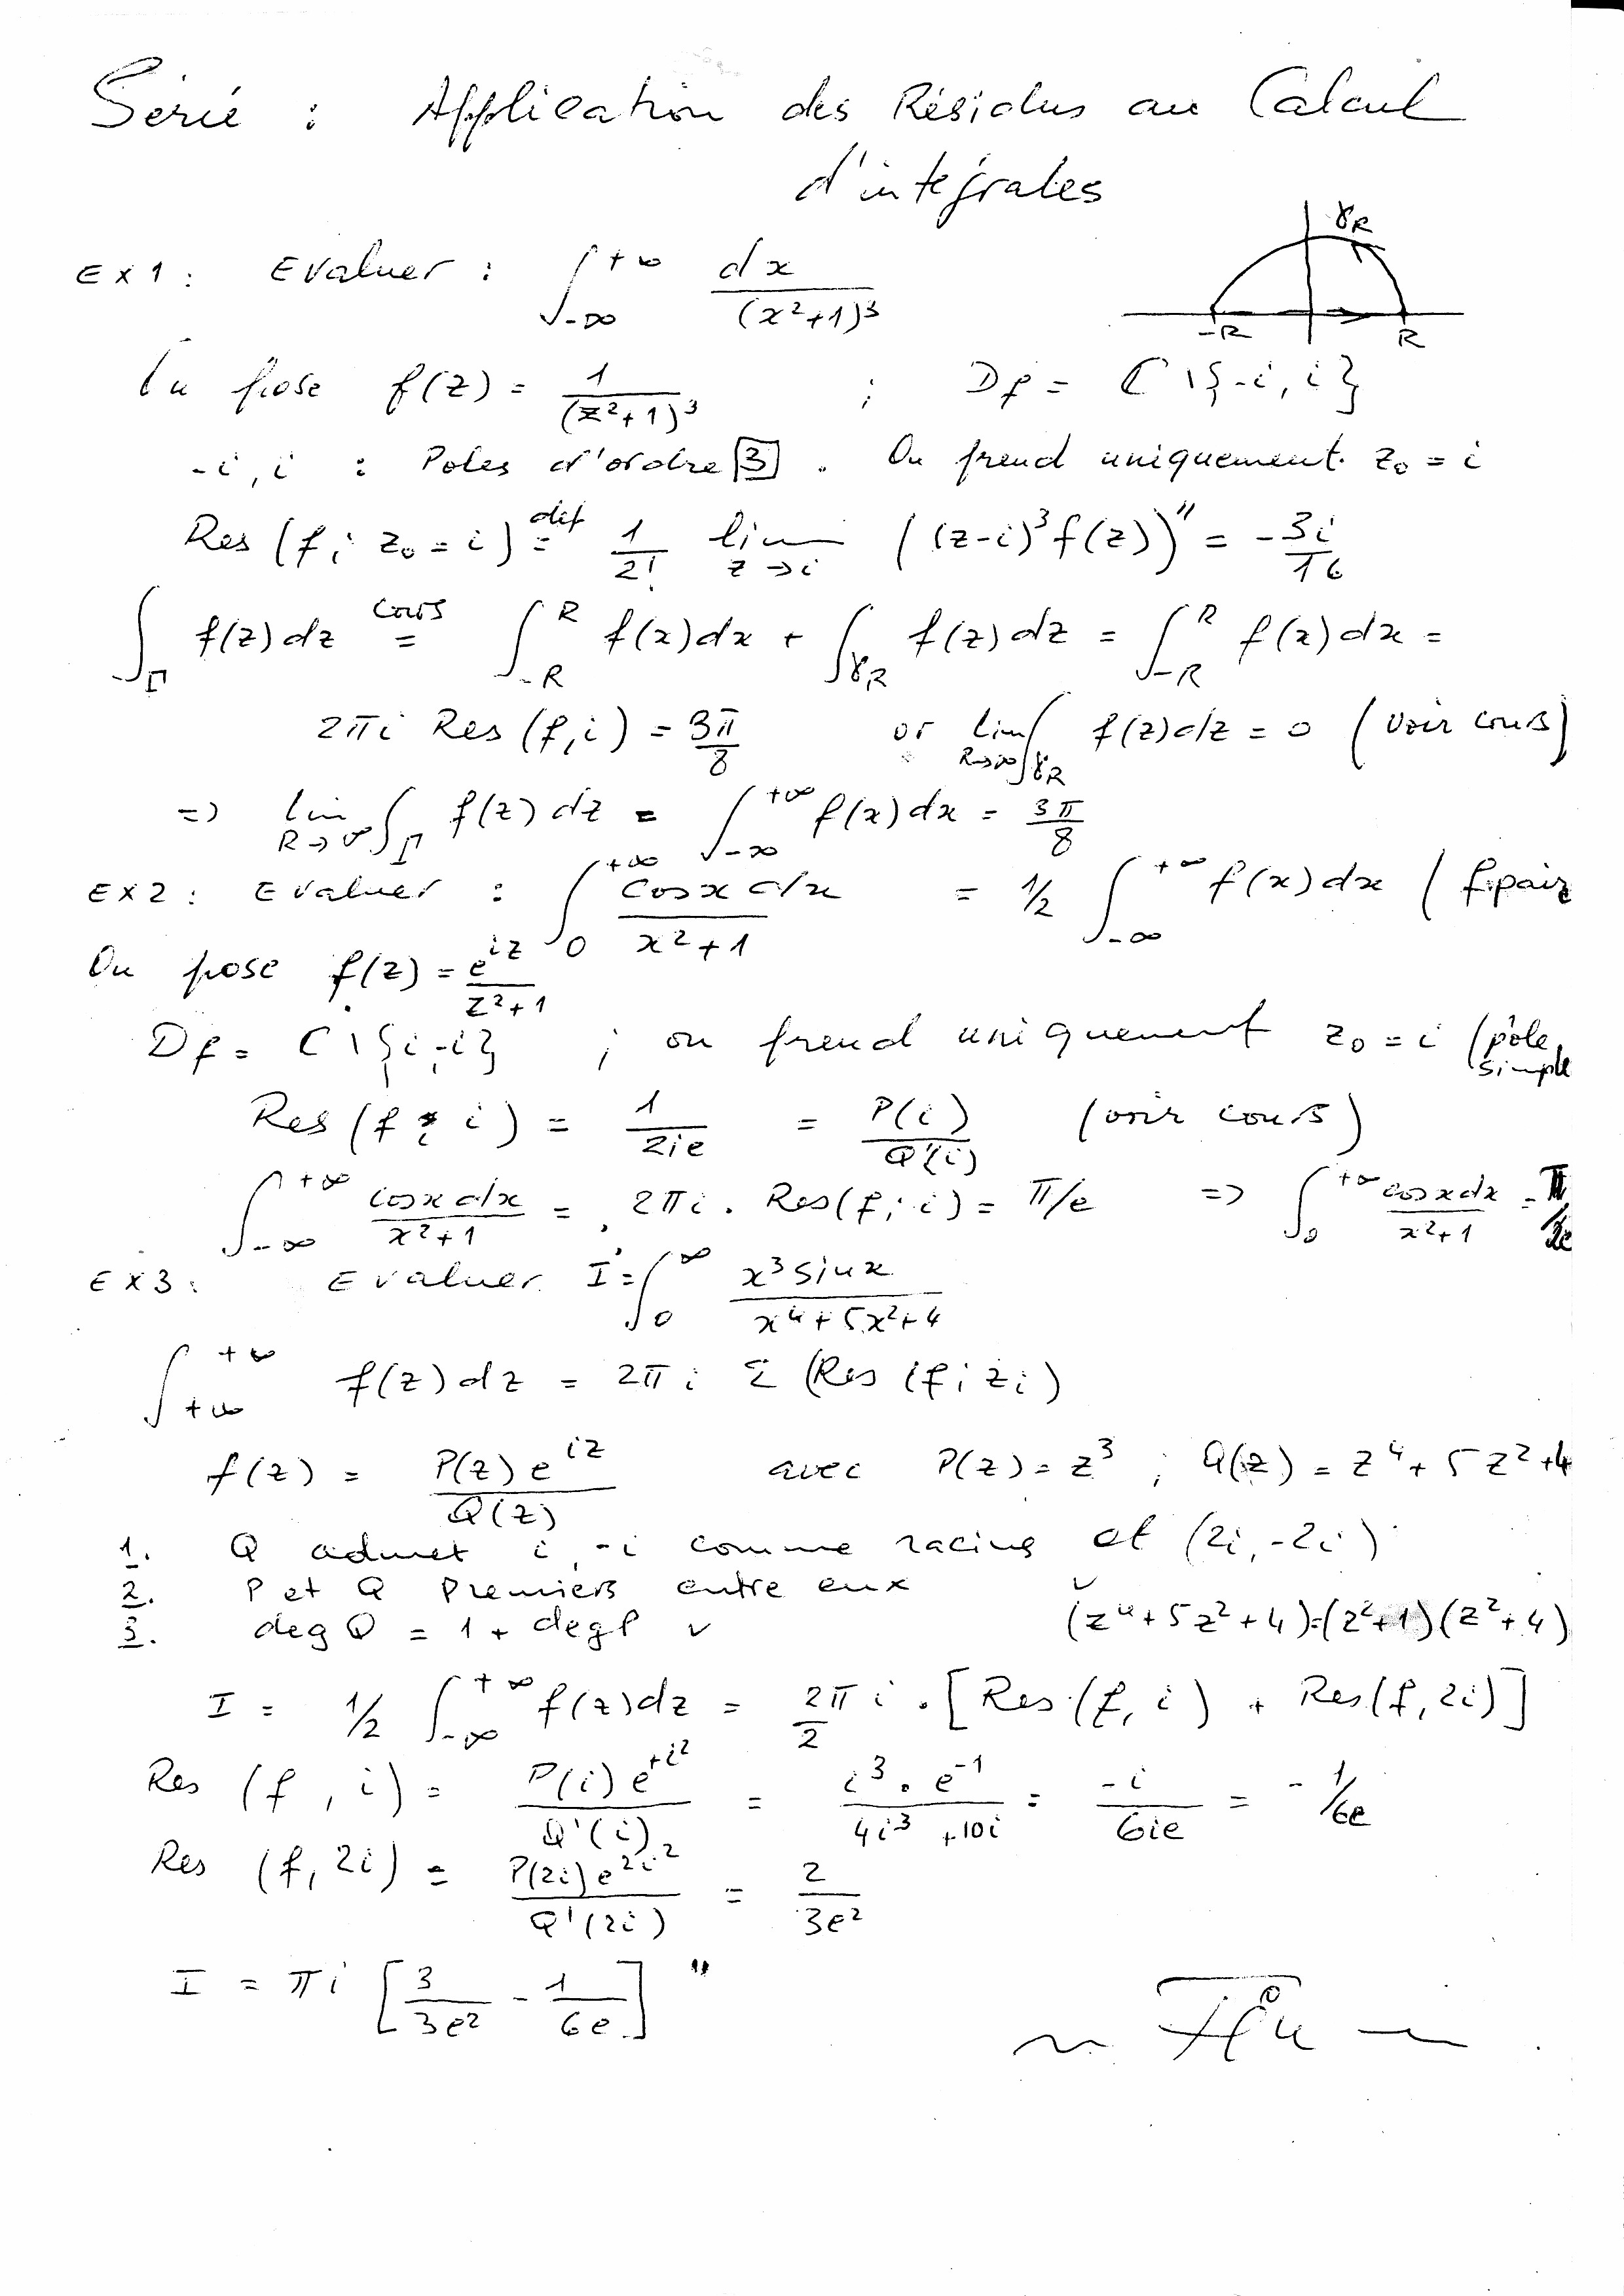 Série : Application des Résidus au Calcul
d'intégrales
γR
-R R
Ex1 : Evaluer : ∫_{-∞}^{+∞} dx/(x²+1)³
On pose f(z) = 1/(z²+1)³ ; Df = ℂ\{-i, i}
-i, i : Poles d'ordre 3 . On prend uniquement z₀ = i
Res (f; z₀ = i) =^{déf} 1/2! lim_{z→i} ((z-i)³ f(z))'' = -3i/16
∫_Γ f(z) dz =^{cours} ∫_{-R}^{R} f(x)dx + ∫_{γR} f(z) dz = ∫_{-R}^{R} f(x) dx =
2πi Res (f, i) = 3π/8 or lim_{R→∞} ∫_{γR} f(z)dz = 0 (voir cours)
=> lim_{R→∞} ∫_Γ f(z) dz = ∫_{-∞}^{+∞} f(x) dx = 3π/8
Ex2 : Evaluer : ∫_0^{+∞} cosx dx/(x²+1) = 1/2 ∫_{-∞}^{+∞} f(x) dx (f paire
On pose f(z) = e^{iz}/(z²+1)
Df = ℂ\{i, -i} ; on prend uniquement z₀ = i (pôle simple
Res (f; i) = 1/(2ie) = P(i)/Q'(i) (voir cours)
∫_{-∞}^{+∞} cosx dx/(x²+1) = 2πi . Res(f; i) = π/e => ∫_0^{+∞} cosxdx/(x²+1) = π/2e
Ex3 : Evaluer I = ∫_0^∞ x³ sinx/(x⁴+5x²+4)
∫_{+∞}^{+∞} f(z) dz = 2πi Σ (Res (f; zi)
f(z) = P(z) e^{iz}/Q(z) avec P(z) = z³ ; Q(z) = z⁴ + 5z² + 4
1. Q admet i, -i comme racines et (2i, -2i)
2. P et Q Premiers entre eux ✓
3. deg Q = 1 + deg P ✓ (z⁴+5z²+4)=(z²+1)(z²+4)
I = 1/2 ∫_{-∞}^{+∞} f(z)dz = 2π/2 i . [Res (f, i) + Res(f, 2i)]
Res (f, i) = P(i) e^{+i²}/Q'(i) = i³ . e^{-1}/(4i³+10i) = -i/(6ie) = -1/6e
Res (f, 2i) = P(2i) e^{2i²}/Q'(2i) = 2/(3e²)
I = πi [3/(3e²) - 1/(6e)] "
~ Fin ~